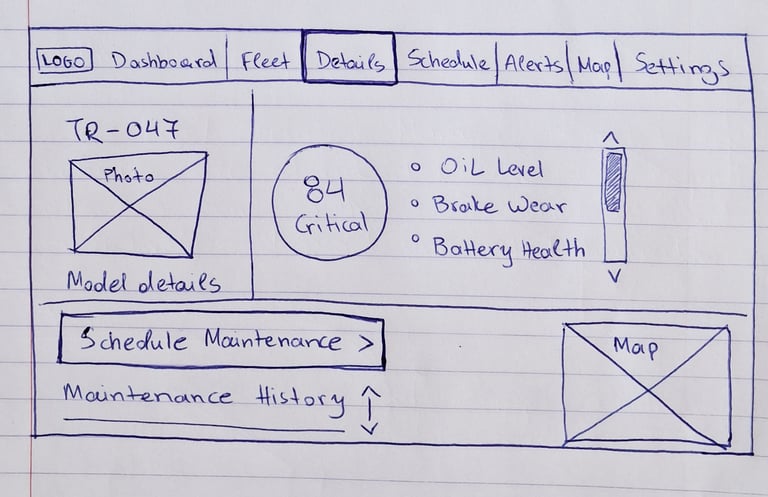 LOGO Dashboard Fleet Details Schedule Alerts Map Settings
TR-047
Photo
Model details
84
Critical
Oil Level
Brake Wear
Battery Health
Schedule Maintenance >
Maintenance History
Map